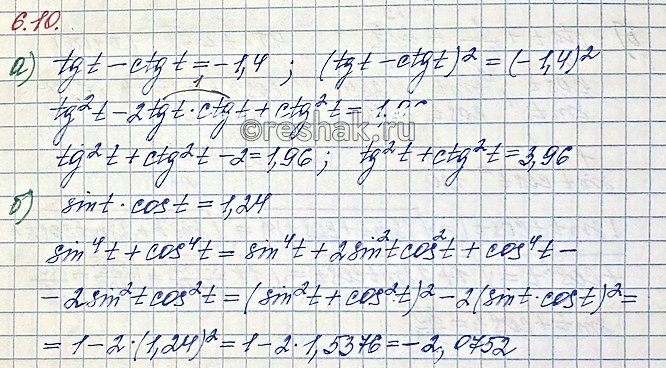 6.10.
а) tgt - ctgt = -1,4 ; (tgt - ctgt)² = (-1,4)²
1
tg²t - 2tgt·ctgt + ctg²t =
©reshak.ru
tg²t + ctg²t - 2 = 1,96 ; tg²t + ctg²t = 3,96
б) sint · cost = 1,24
sin⁴t + cos⁴t = sin⁴t + 2sin²tcos²t + cos⁴t -
- 2sin²tcos²t = (sin²t + cos²t)² - 2(sint·cost)² =
= 1 - 2·(1,24)² = 1 - 2·1,5376 = -2,0752